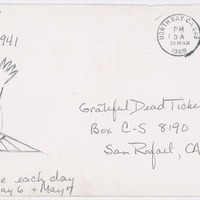 941
NORTH BAY CA
PM
3 A
MAR
1989
Grateful Dead Ticke
Box C-S 8190
San Rafael, CA
e each day
ay 6 + May 7